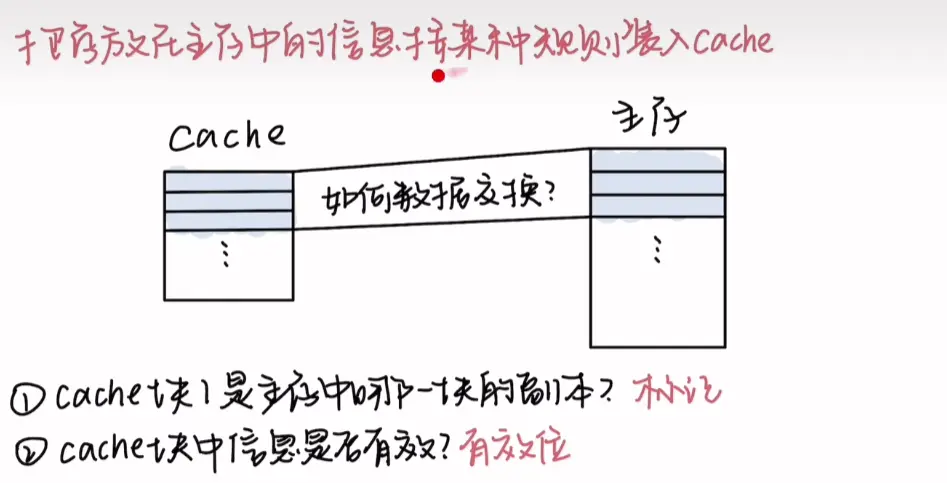 把存放在主存中的信息按某种规则装入Cache
Cache
主存
如何数据交换?
⋮
⋮
① cache块1是主存中哪一块的副本? 标记
② cache块中信息是否有效? 有效位